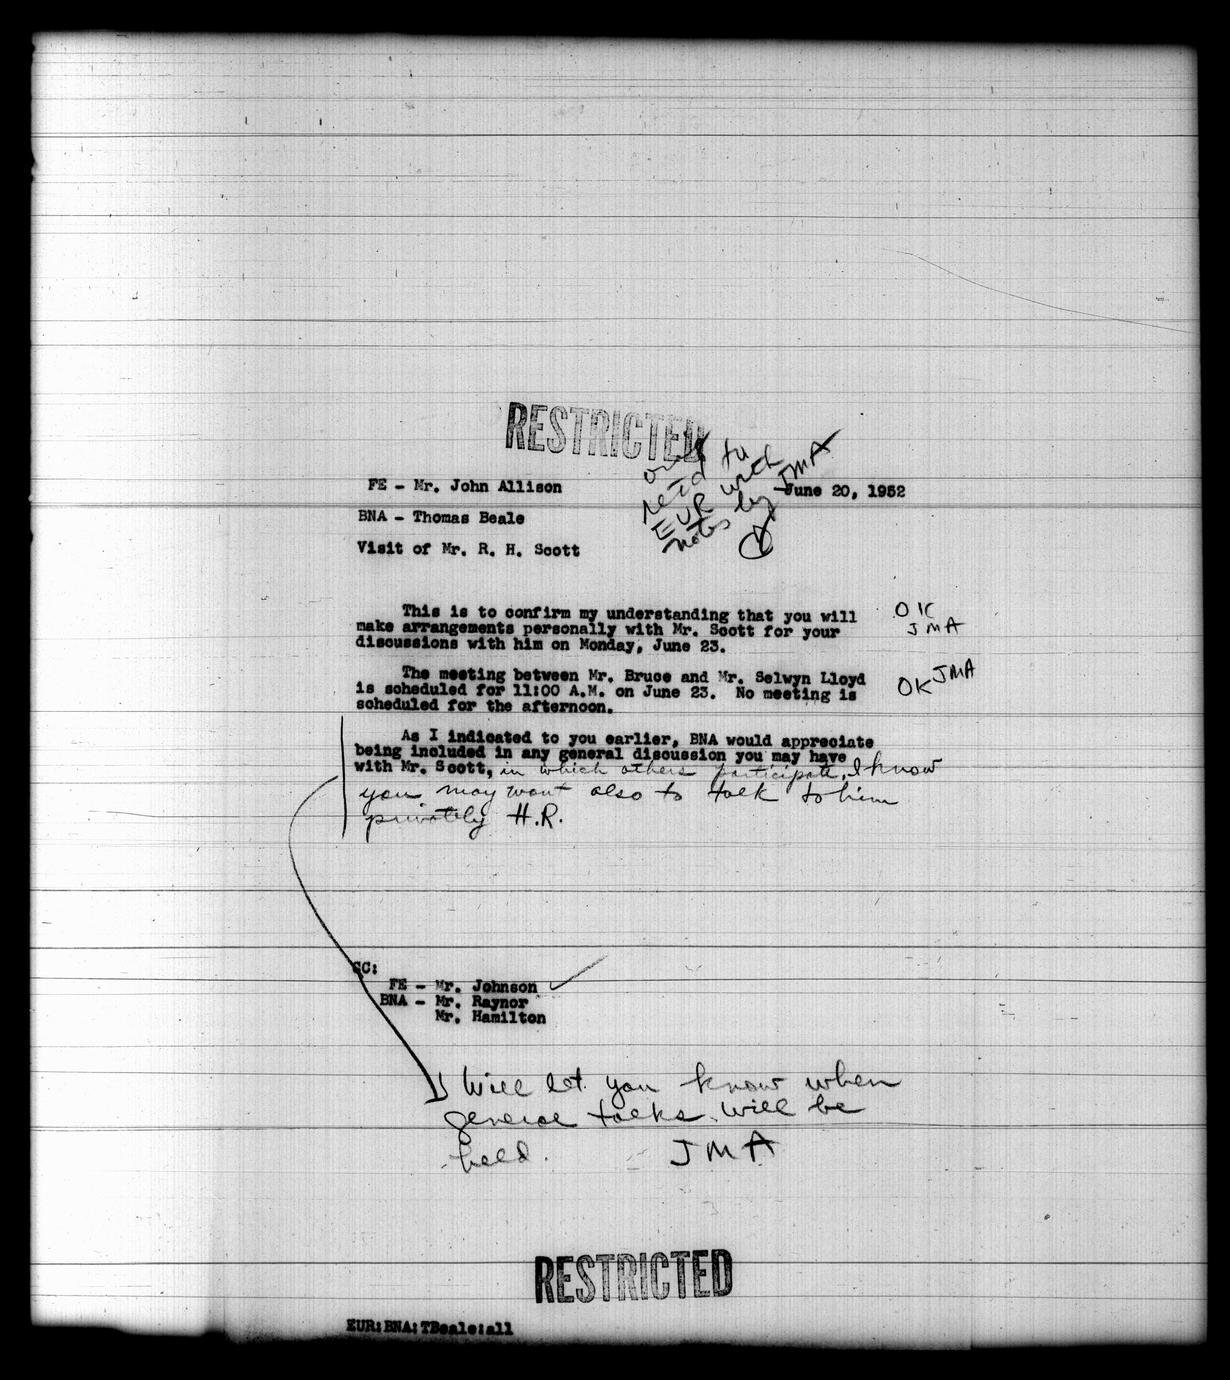 RESTRICTED
FE - Mr. John Allison
June 20, 1952
BNA - Thomas Beale
Visit of Mr. R. H. Scott
to
EUR with
notes by JMA
This is to confirm my understanding that you will
make arrangements personally with Mr. Scott for your
discussions with him on Monday, June 23.
OK
JMA
The meeting between Mr. Bruce and Mr. Selwyn Lloyd
is scheduled for 11:00 A.M. on June 23. No meeting is
scheduled for the afternoon.
OK JMA
As I indicated to you earlier, BNA would appreciate
being included in any general discussion you may have
with Mr. Scott, in which others participate. I know
you may want also to talk to him
privately H.R.
CC:
FE - Mr. Johnson
BNA - Mr. Raynor
Mr. Hamilton
I will let you know when
general talks will be
held. JMA
RESTRICTED
EUR:BNA:TBeale:all